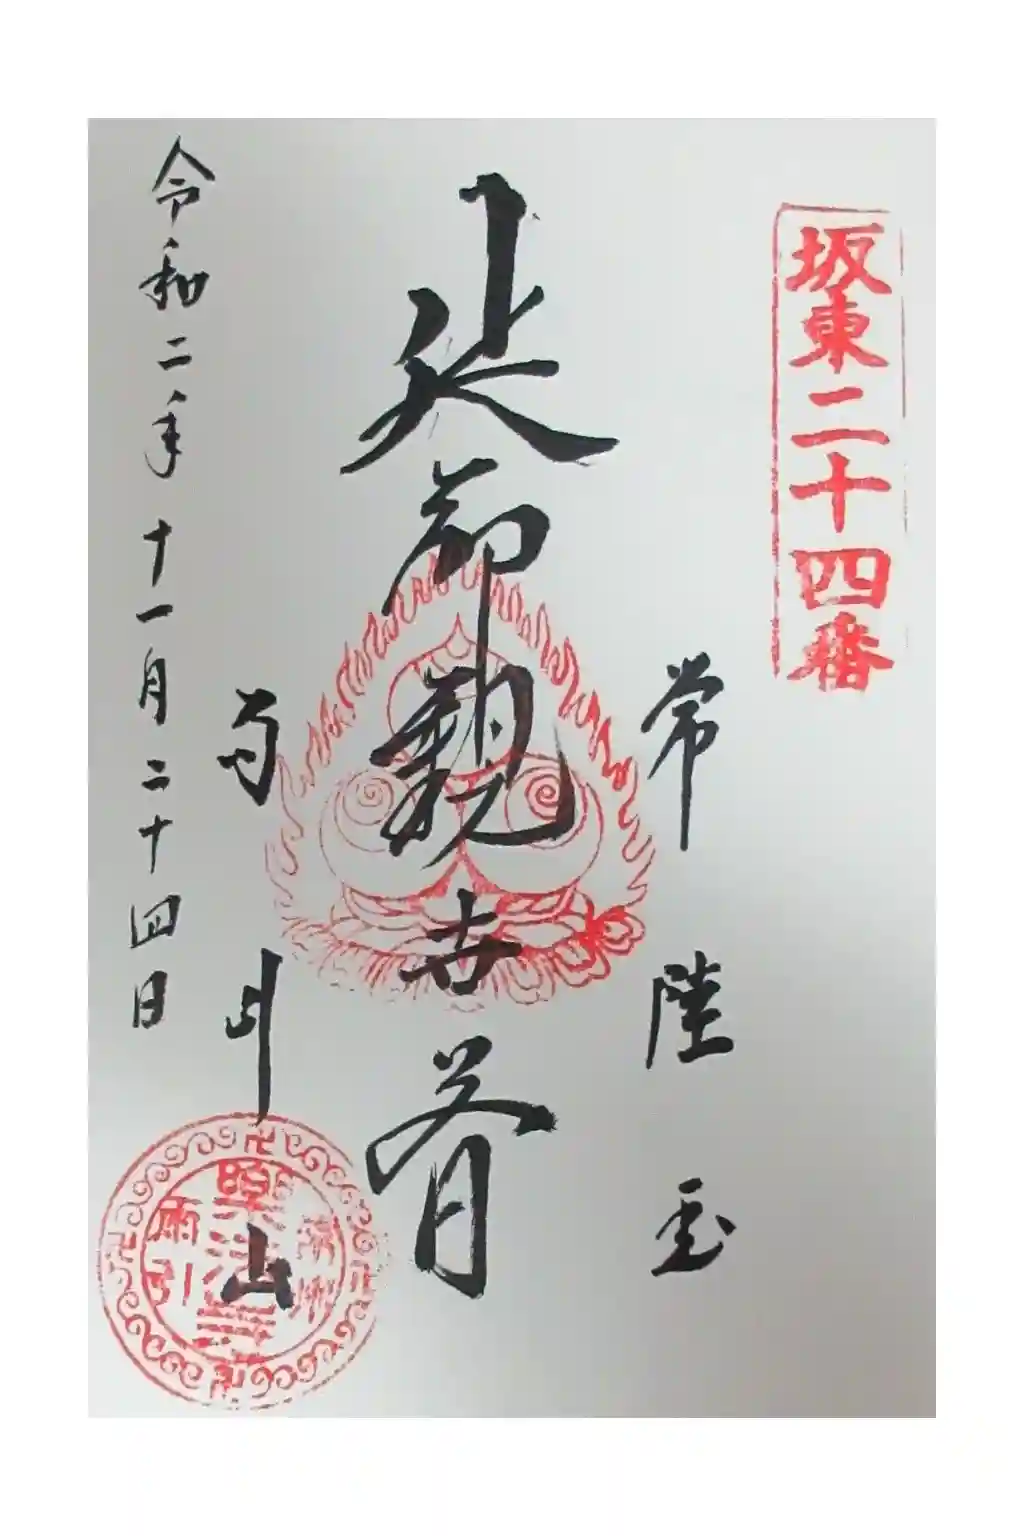 坂東二十四番
常陸國
延命観世音
雨引山
令和二年十一月二十四日
樂法寺
雨引